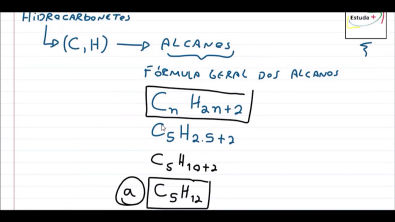 HIDROCARBONETOS
Estuda +
(C, H) → ALCANOS
FÓRMULA GERAL DOS ALCANOS
Cₙ H₂ₙ₊₂
C₅ H₂.₅₊₂
C₅ H₁₀₊₂
a C₅ H₁₂